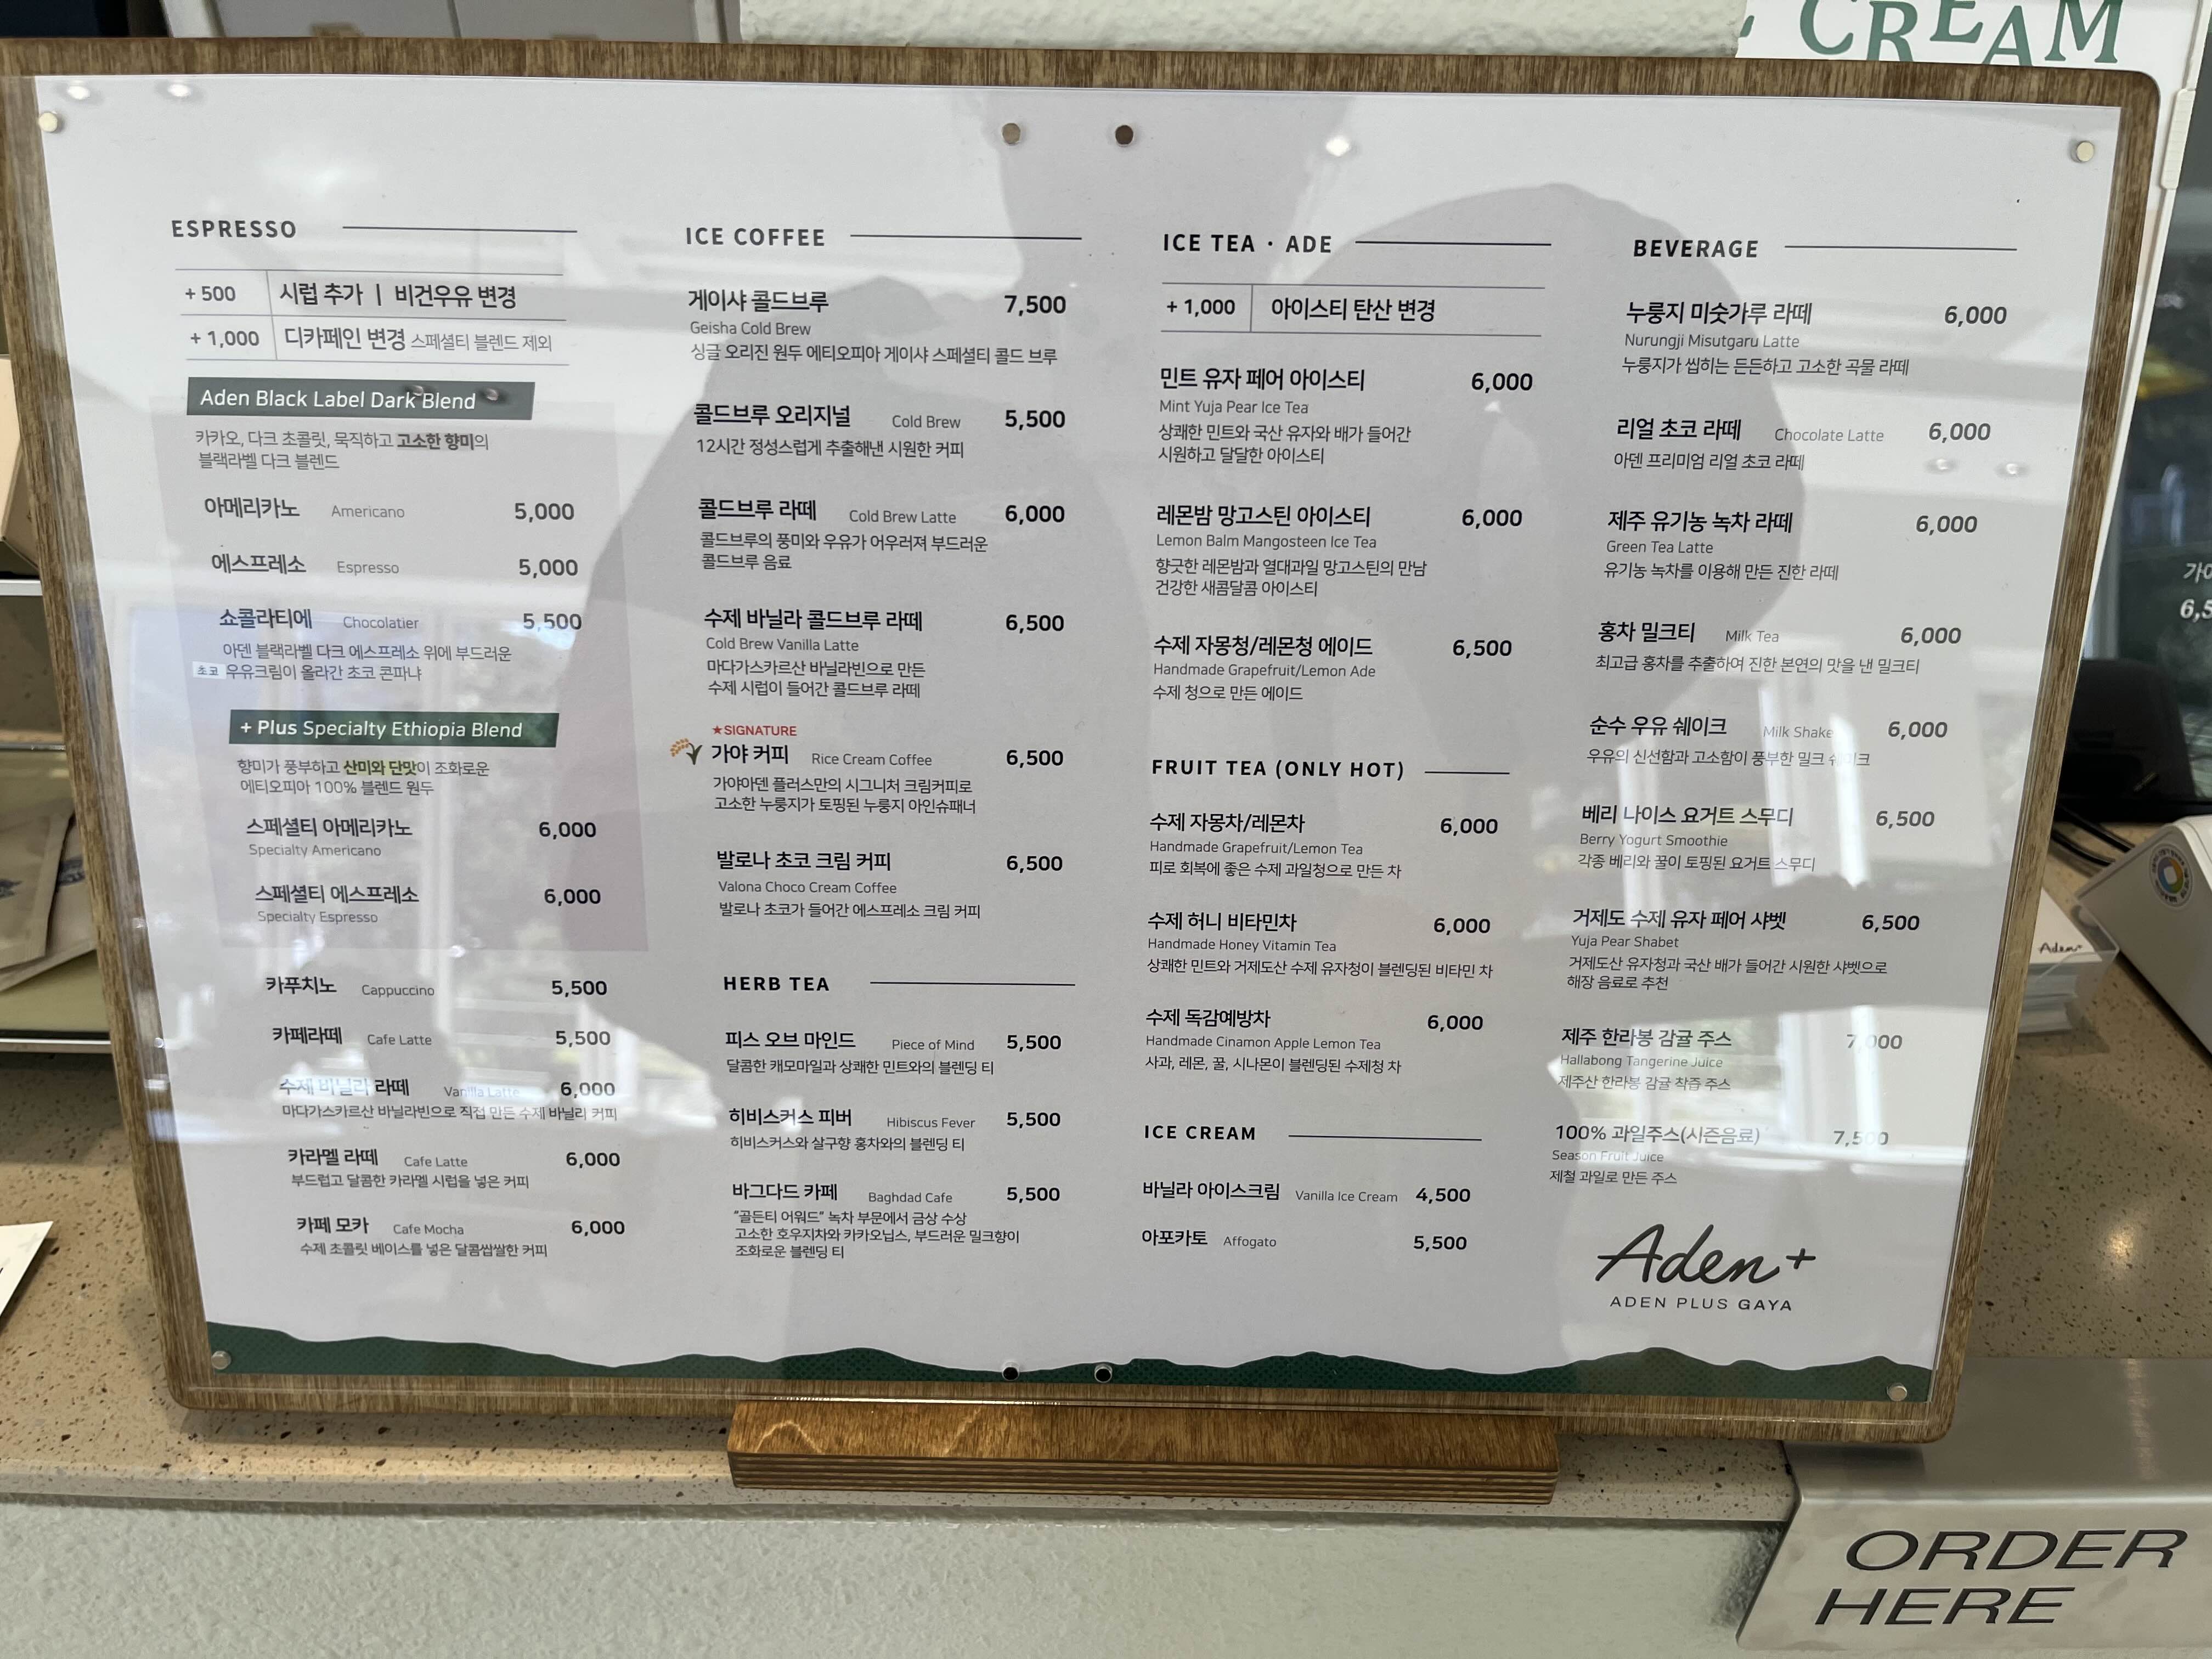 CREAM
ESPRESSO
+ 500 시럽 추가 | 비건우유 변경
+ 1,000 디카페인 변경 스페셜티 블렌드 제외
Aden Black Label Dark Blend
카카오, 다크 초콜릿, 묵직하고 고소한 향미의
블랙라벨 다크 블렌드
아메리카노 Americano 5,000
에스프레소 Espresso 5,000
쇼콜라티에 Chocolatier 5,500
아덴 블랙라벨 다크 에스프레소 위에 부드러운
초코 우유크림이 올라간 초코 콘파냐
+ Plus Specialty Ethiopia Blend
향미가 풍부하고 산미와 단맛이 조화로운
에티오피아 100% 블렌드 원두
스페셜티 아메리카노 6,000
Specialty Americano
스페셜티 에스프레소 6,000
Specialty Espresso
카푸치노 Cappuccino 5,500
카페라떼 Cafe Latte 5,500
수제 바닐라 라떼 Vanilla Latte 6,000
마다가스카르산 바닐라빈으로 직접 만든 수제 바닐라 커피
카라멜 라떼 Cafe Latte 6,000
부드럽고 달콤한 카라멜 시럽을 넣은 커피
카페 모카 Cafe Mocha 6,000
수제 초콜릿 베이스를 넣은 달콤쌉쌀한 커피
ICE COFFEE
게이샤 콜드브루 7,500
Geisha Cold Brew
싱글 오리진 원두 에티오피아 게이샤 스페셜티 콜드 브루
콜드브루 오리지널 Cold Brew 5,500
12시간 정성스럽게 추출해낸 시원한 커피
콜드브루 라떼 Cold Brew Latte 6,000
콜드브루의 풍미와 우유가 어우러져 부드러운
콜드브루 음료
수제 바닐라 콜드브루 라떼 6,500
Cold Brew Vanilla Latte
마다가스카르산 바닐라빈으로 만든
수제 시럽이 들어간 콜드브루 라떼
★SIGNATURE
가야 커피 Rice Cream Coffee 6,500
가야아덴 플러스만의 시그니처 크림커피로
고소한 누룽지가 토핑된 누룽지 아인슈패너
발로나 초코 크림 커피 6,500
Valona Choco Cream Coffee
발로나 초코가 들어간 에스프레소 크림 커피
HERB TEA
피스 오브 마인드 Piece of Mind 5,500
달콤한 캐모마일과 상쾌한 민트와의 블렌딩 티
히비스커스 피버 Hibiscus Fever 5,500
히비스커스와 살구향 홍차와의 블렌딩 티
바그다드 카페 Baghdad Cafe 5,500
"골든티 어워드" 녹차 부문에서 금상 수상
고소한 호우지차와 카카오닙스, 부드러운 밀크향이
조화로운 블렌딩 티
ICE TEA · ADE
+ 1,000 아이스티 탄산 변경
민트 유자 페어 아이스티 6,000
Mint Yuja Pear Ice Tea
상쾌한 민트와 국산 유자와 배가 들어간
시원하고 달달한 아이스티
레몬밤 망고스틴 아이스티 6,000
Lemon Balm Mangosteen Ice Tea
향긋한 레몬밤과 열대과일 망고스틴의 만남
건강한 새콤달콤 아이스티
수제 자몽청/레몬청 에이드 6,500
Handmade Grapefruit/Lemon Ade
수제 청으로 만든 에이드
FRUIT TEA (ONLY HOT)
수제 자몽차/레몬차 6,000
Handmade Grapefruit/Lemon Tea
피로 회복에 좋은 수제 과일청으로 만든 차
수제 허니 비타민차 6,000
Handmade Honey Vitamin Tea
상쾌한 민트와 거제도산 수제 유자청이 블렌딩된 비타민 차
수제 독감예방차 6,000
Handmade Cinamon Apple Lemon Tea
사과, 레몬, 꿀, 시나몬이 블렌딩된 수제청 차
ICE CREAM
바닐라 아이스크림 Vanilla Ice Cream 4,500
아포카토 Affogato 5,500
BEVERAGE
누룽지 미숫가루 라떼 6,000
Nurungji Misutgaru Latte
누룽지가 씹히는 든든하고 고소한 곡물 라떼
리얼 초코 라떼 Chocolate Latte 6,000
아덴 프리미엄 리얼 초코 라떼
제주 유기농 녹차 라떼 6,000
Green Tea Latte
유기농 녹차를 이용해 만든 진한 라떼
홍차 밀크티 Milk Tea 6,000
최고급 홍차를 추출하여 진한 본연의 맛을 낸 밀크티
순수 우유 쉐이크 Milk Shake 6,000
우유의 신선함과 고소함이 풍부한 밀크 쉐이크
베리 나이스 요거트 스무디 6,500
Berry Yogurt Smoothie
각종 베리와 꿀이 토핑된 요거트 스무디
거제도 수제 유자 페어 샤벳 6,500
Yuja Pear Shabet
거제도산 유자청과 국산 배가 들어간 시원한 샤벳으로
해장 음료로 추천
제주 한라봉 감귤 주스 7,000
Hallabong Tangerine Juice
제주산 한라봉 감귤 착즙 주스
100% 과일주스(시즌음료) 7,500
Season Fruit Juice
제철 과일로 만든 주스
Aden+
ADEN PLUS GAYA
Aden+
ORDER
HERE